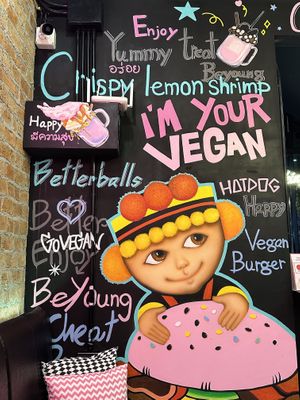 Enjoy
Yummy treat
อร่อย
Beyoung
Crispy lemon shrimp
I'M YOUR
VEGAN
Happy
มีความสุข
Betterballs
HATDOG
Happy
Better
GOVEGAN
Enjoy
Vegan
Burger
BeYoung
Cheat